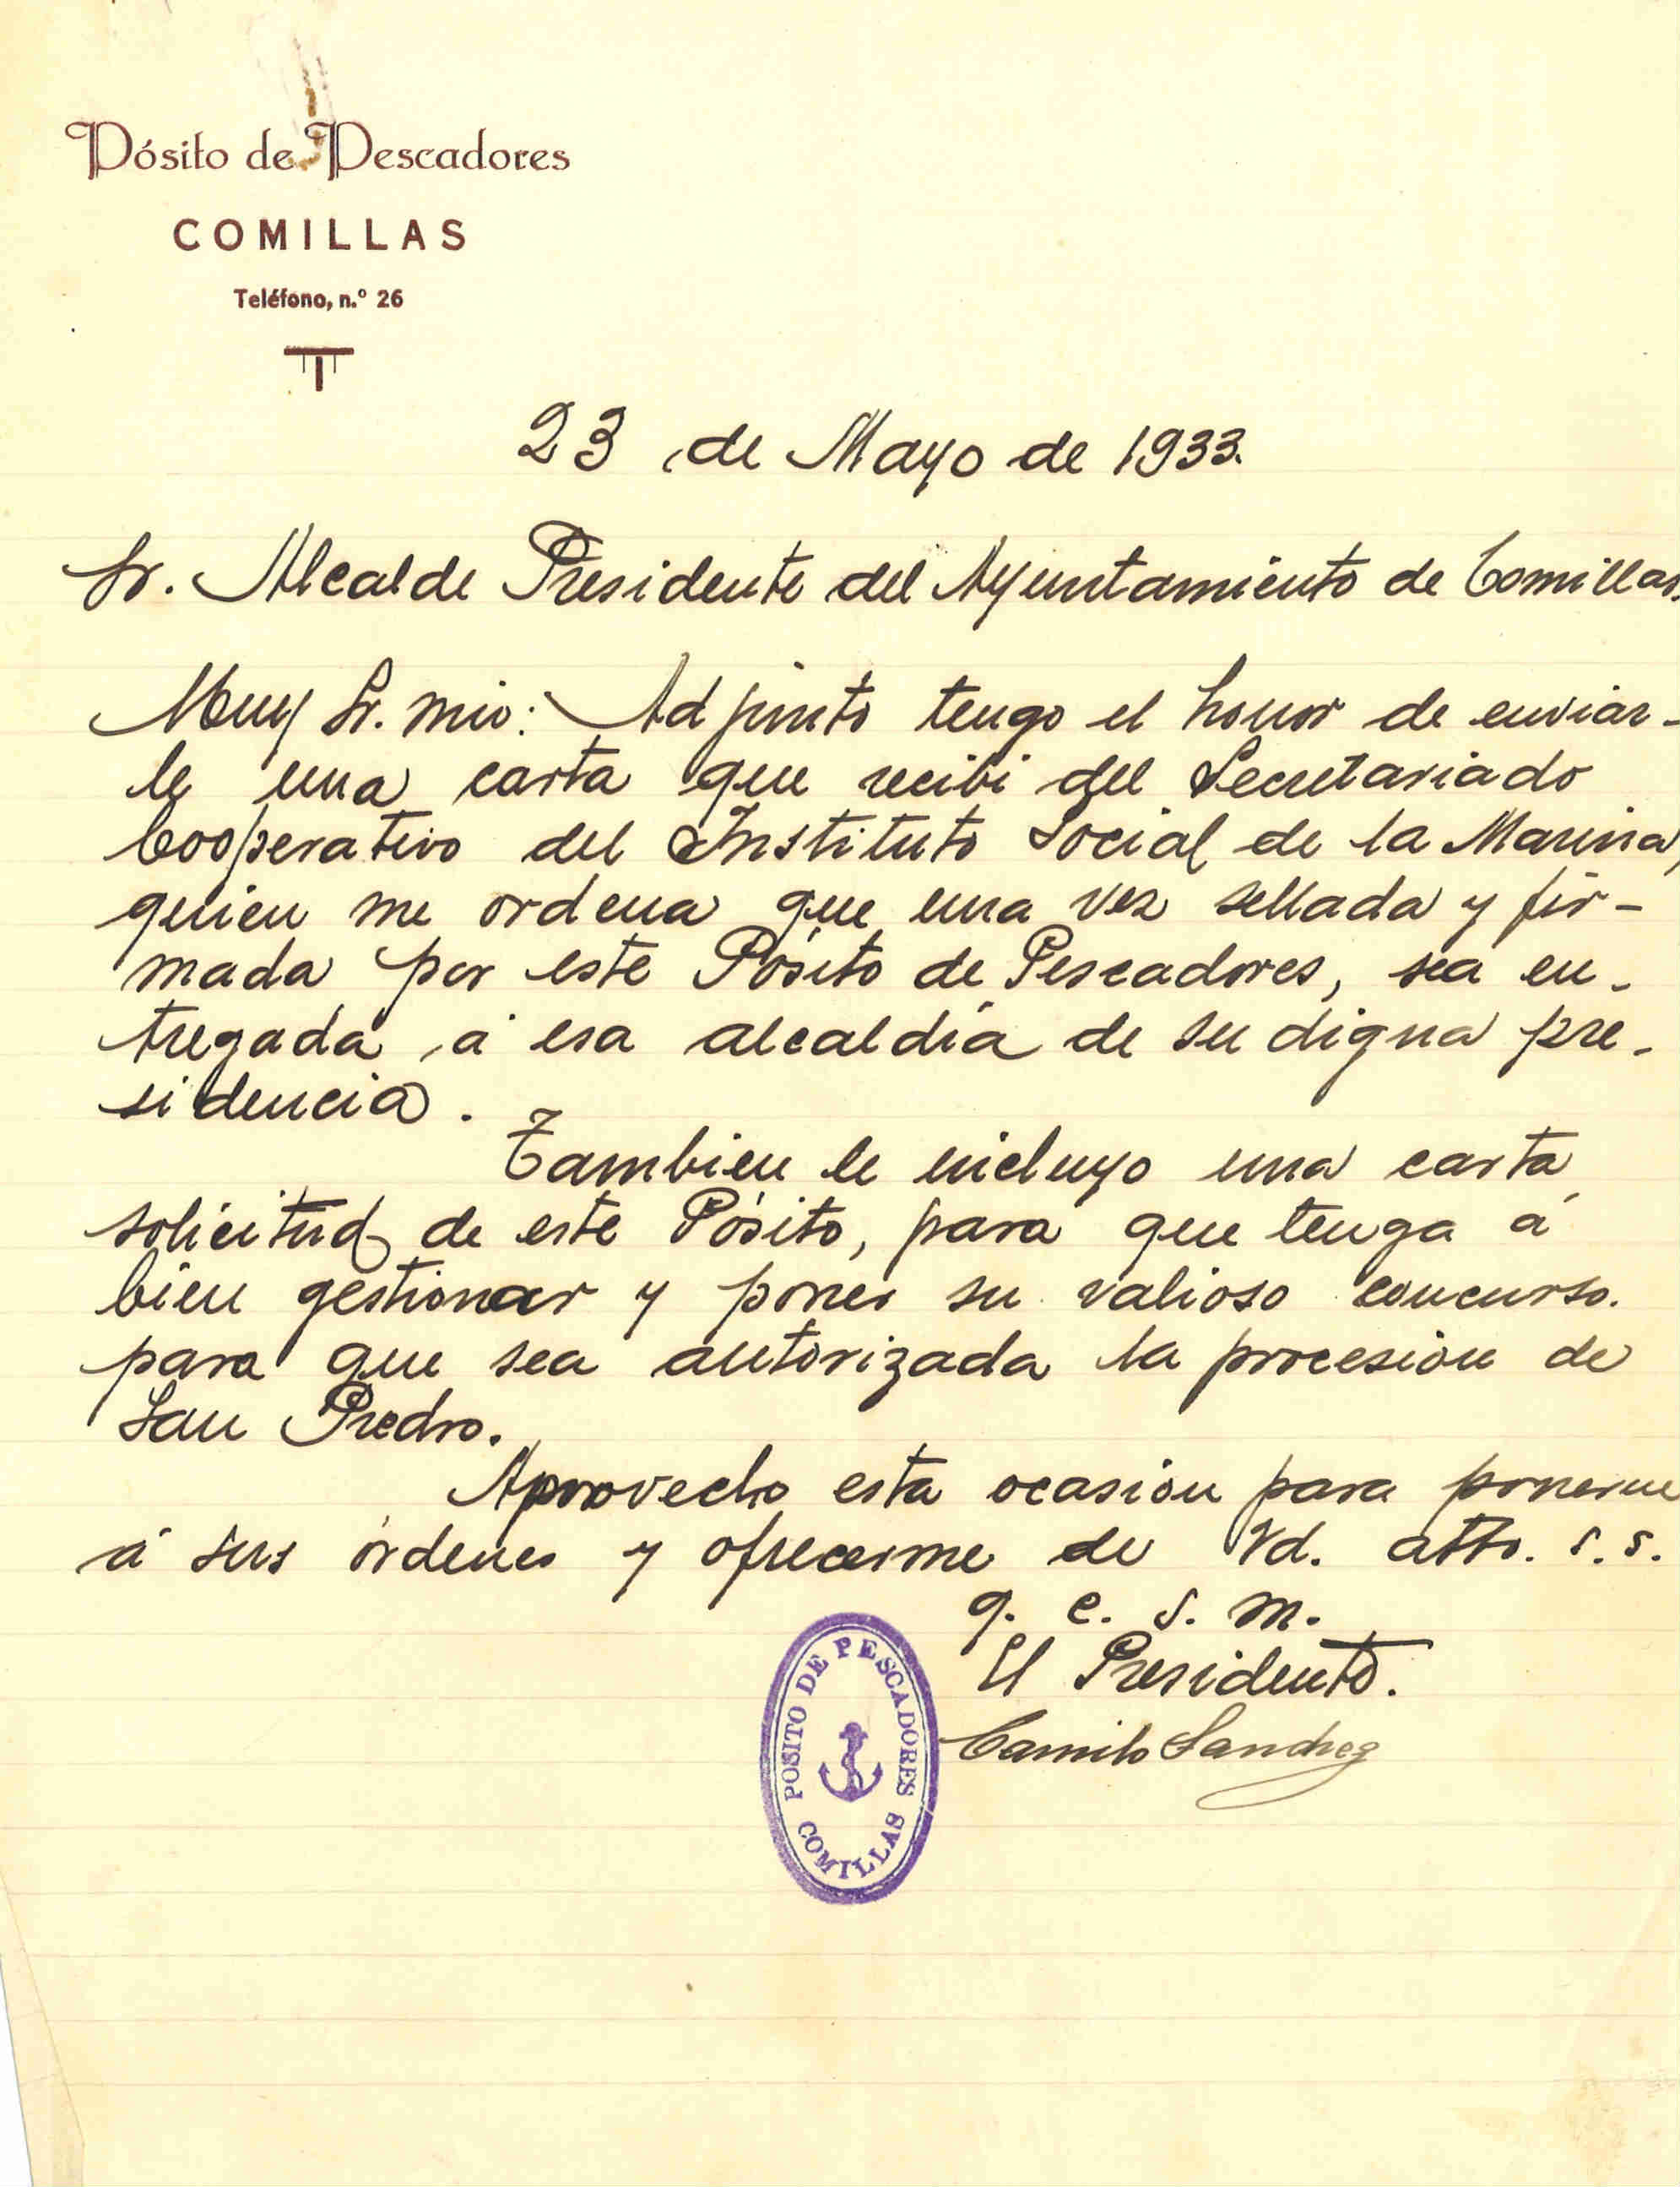 Pósito de Pescadores
COMILLAS
Teléfono, n.º 26
23 de Mayo de 1933.
Sr. Alcalde Presidente del Ayuntamiento de Comillas.
Muy Sr. mio: Adjunto tengo el honor de enviar-
le una carta que recibi del Secretariado
Cooperativo del Instituto Social de la Marina,
quien me ordena que una vez sellada y fir-
mada por este Pósito de Pescadores, sea en-
tregada á esa alcaldía de su digna pre-
sidencia.
Tambien le incluyo una carta
solicitud de este Pósito, para que tenga á
bien gestionar y poner su valioso concurso.
para que sea autorizada la procesión de
San Predro.
Aprovecho esta ocasión para ponerme
á sus órdenes y ofrecerme de Vd. atto. s. s.
q. e. s. m.
El Presidente.
Camilo Sanchez
POSITO DE PESCADORES
COMILLAS